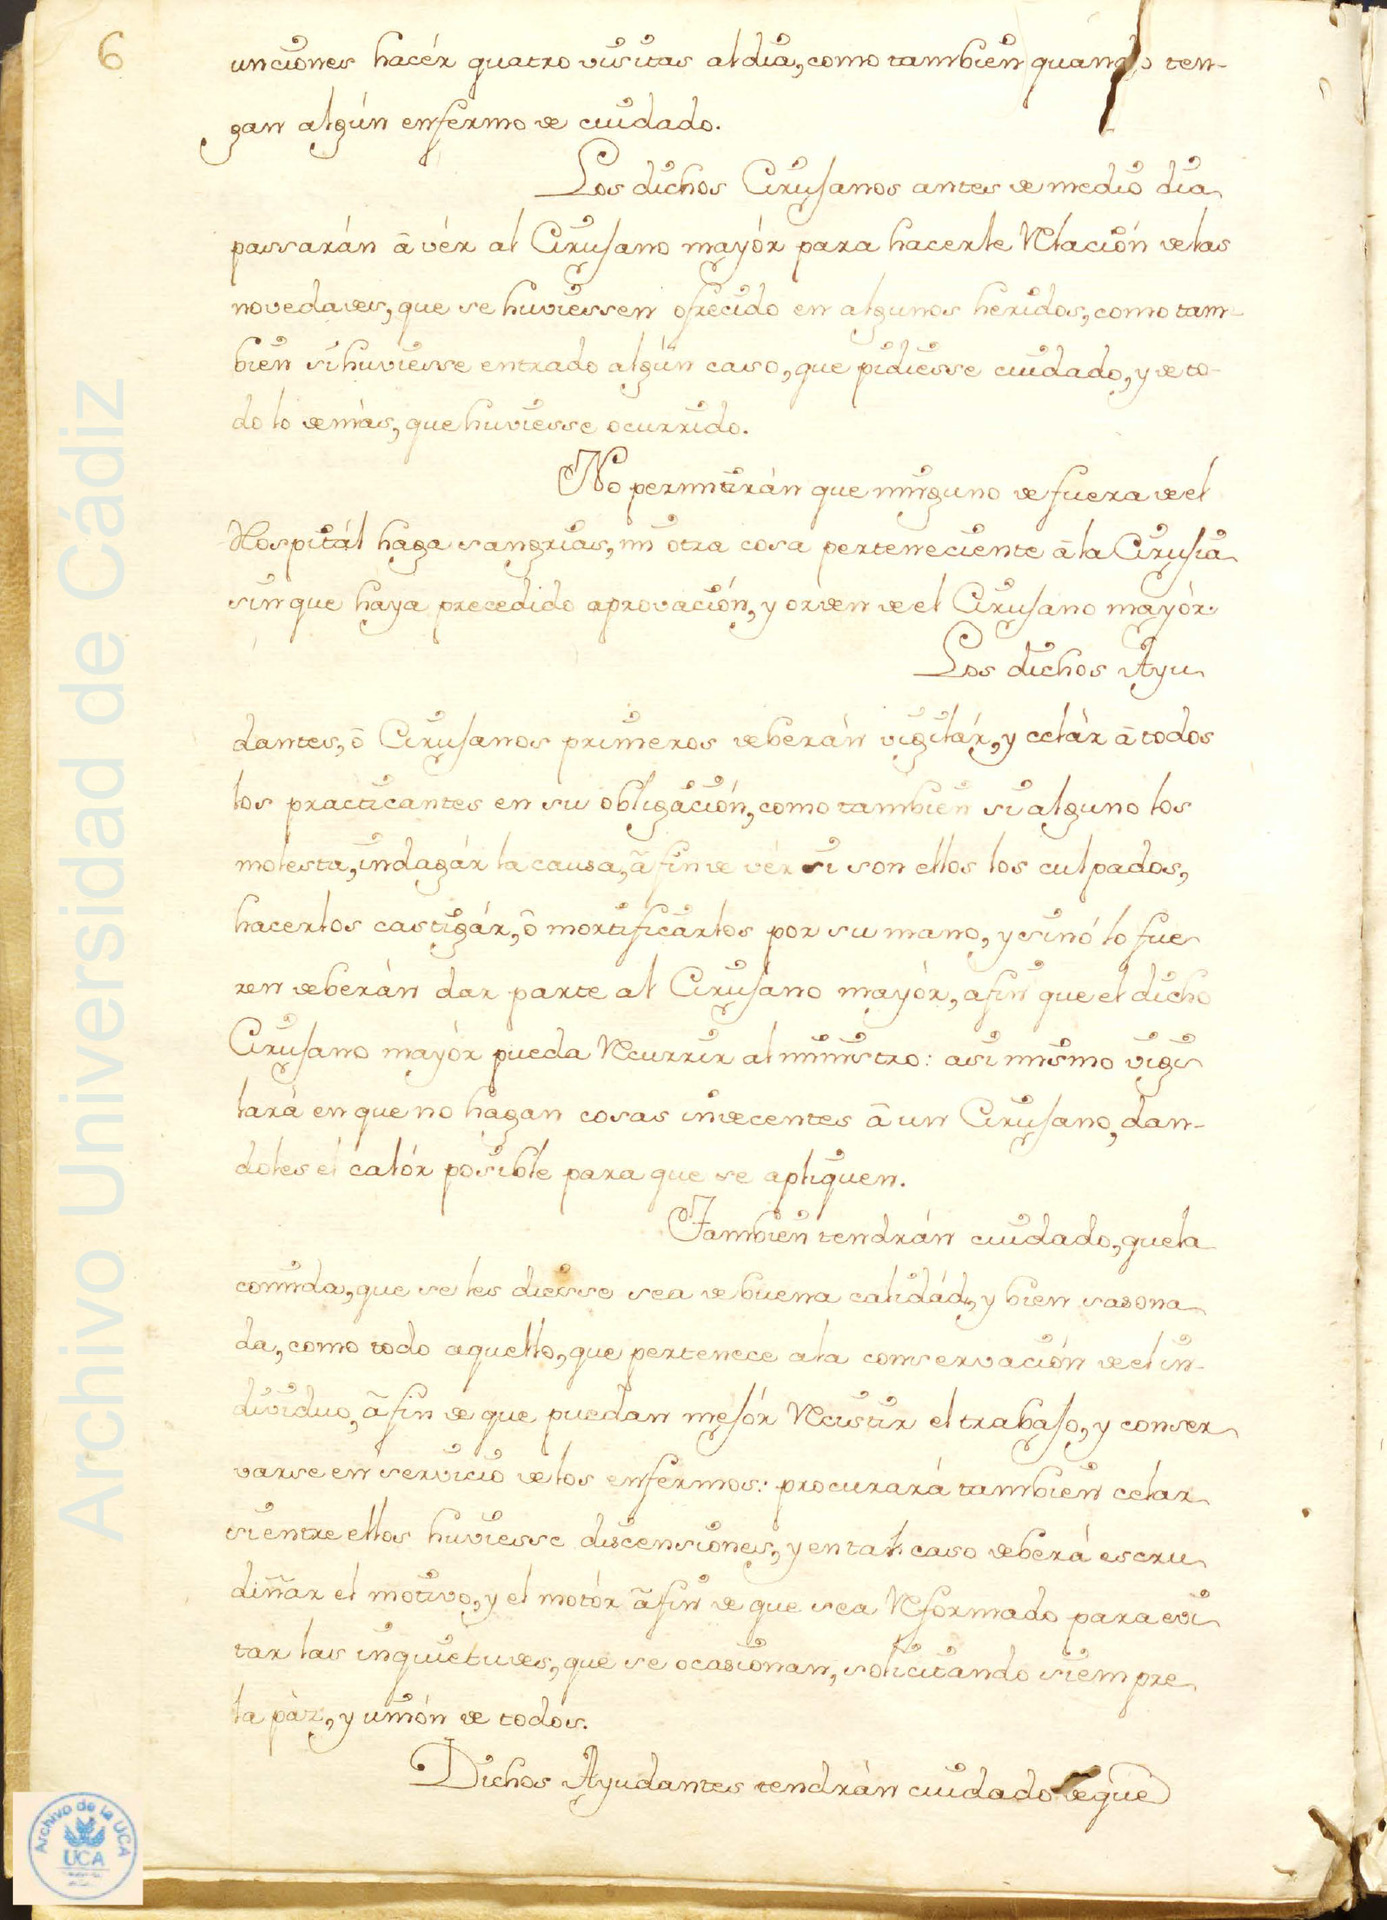 6
unciones hacér quatro visitas al dia, como tambien quando ten-
gan algún enfermo de cuidado.
Los dichos Cirujanos antes de medio dia
passarán â vér al Cirujano mayór para hacerle Relación de las
novedades, que se huviessen ofrecido en algunos heridos, como tam-
bien si huviesse entrado algún caso, que pidiesse cuidado, y de to-
do lo demàs, que huviesse ocurrido.
No permitirán que ninguno de fuera de el
Hospitál haga sangrias, ni otra cosa perteneciente â la Cirujia
sin que haya precedido aprovación, y orden de el Cirujano mayór.
Los dichos Ayu
dantes, ô Cirujanos primeros deberán vigilár, y celár â todos
los practicantes en su obligación, como tambien si alguno los
molesta, indagár la causa, â fin de vér si son ellos los culpados,
hacerlos castigár, ô mortificarlos por su mano, y sinó lo fue
ren deberàn dar parte al Cirujano mayór, afin que el dicho
Cirujano mayór pueda Recurrir al ministro: asi mismo vigi
lará en que no hagan cosas indecentes â un Cirujano, dan-
doles el calór posible para que se apliquen.
Tambien tendrán cuidado, que la
comida, que se les diesse sea de buena calidád, y bien sasona
da, como todo aquello, que pertenece a la conservación de el in-
dividuo, â fin de que puedan mejór Recistir el trabajo, y conser
varse en servicio de los enfermos: procurará tambien celar
si entre ellos huviesse discensiones, y en tal caso deberá escru
diñar el motivo, y el motór â fin de que sea Reformado para evi
tar las inquietudes, que se ocasionan, solicitando siempre
la pàz, y unión de todos.
Dichos Ayudantes tendrán cuidado de que
Archivo Universidad de Cádiz
Archivo de la UCA
UCA